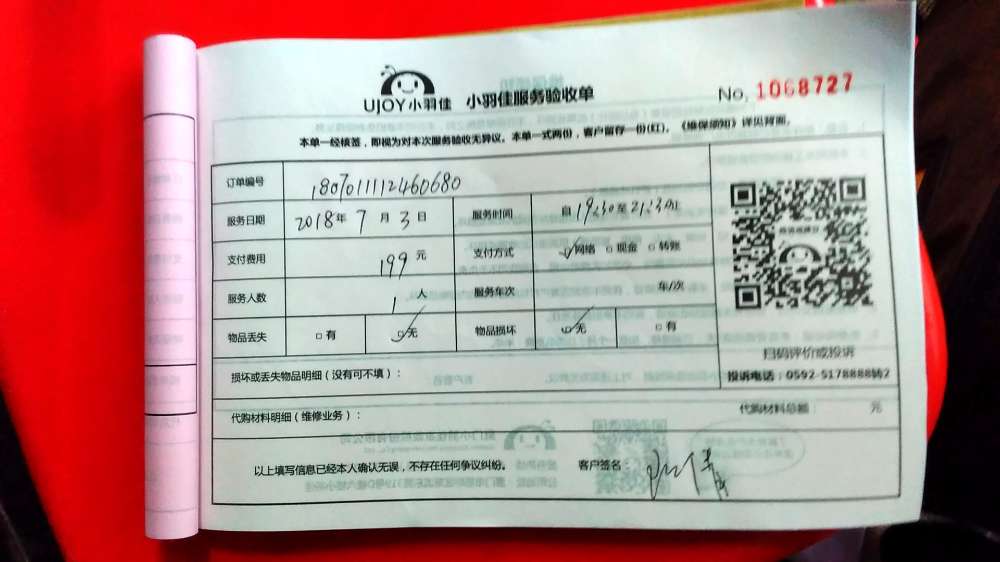 UJOY小羽佳 小羽佳服务验收单 No. 1068727
本单一经核签，即视为对本次服务验收无异议。本单一式两份，客户留存一份(红)。《维保须知》详见背面。
订单编号 180701112460680
服务日期 2018年 7 月 3 日 服务时间 自 19:30 至 21:30 止
支付费用 199 元 支付方式 ☑网络 □现金 □转账
服务人数 1 人 服务车次 车/次
物品丢失 □有 ☑无 物品损坏 ☑无 □有
扫码评价或投诉
投诉电话：0592-5178888转2
损坏或丢失物品明细（没有可不填）：
代购材料明细（维修业务）： 代购材料总额： 元
以上填写信息已经本人确认无误，不存在任何争议纠纷。 客户签名：